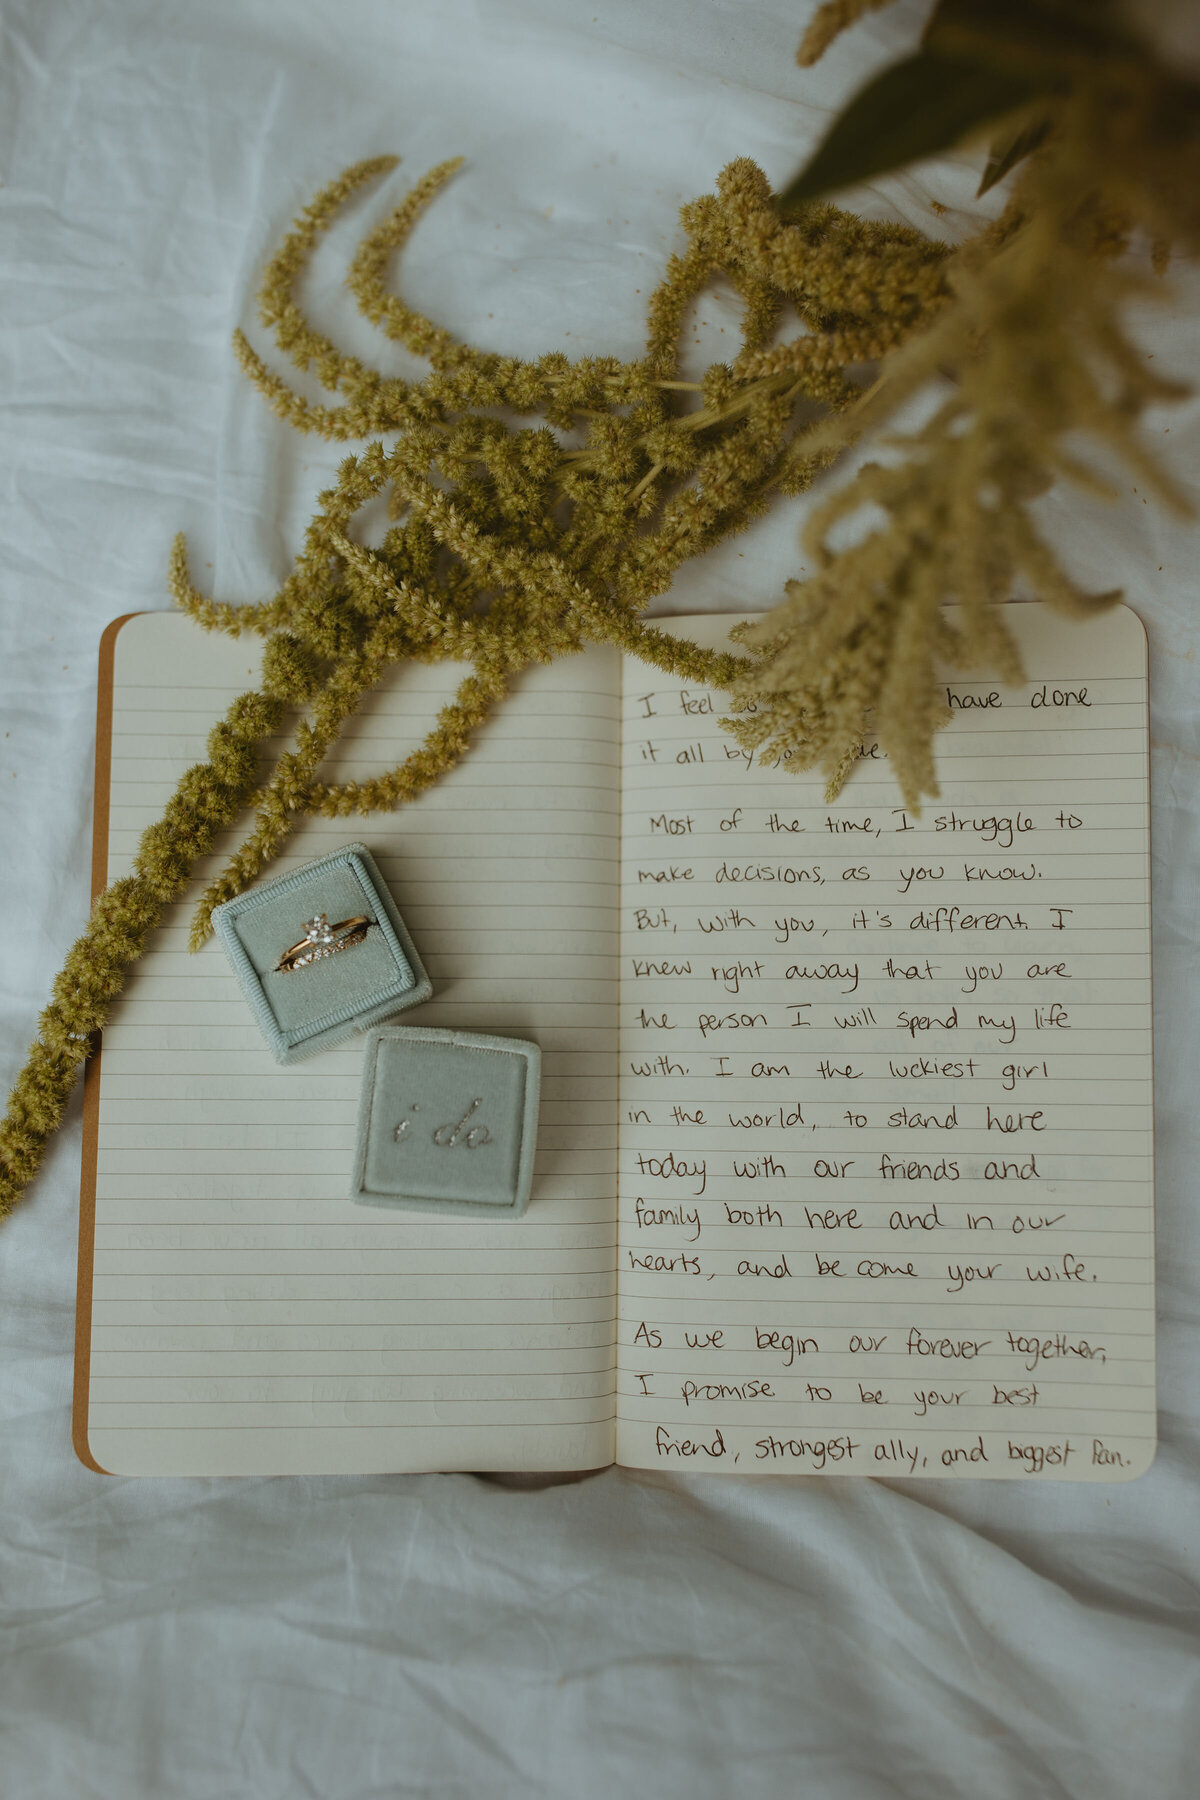 I feel have done
it all by
Most of the time, I struggle to
make decisions, as you know.
But, with you, it's different. I
knew right away that you are
the person I will spend my life
with. I am the luckiest girl
in the world, to stand here
today with our friends and
family both here and in our
hearts, and be come your wife.
As we begin our forever together,
I promise to be your best
friend, strongest ally, and biggest fan.
i do